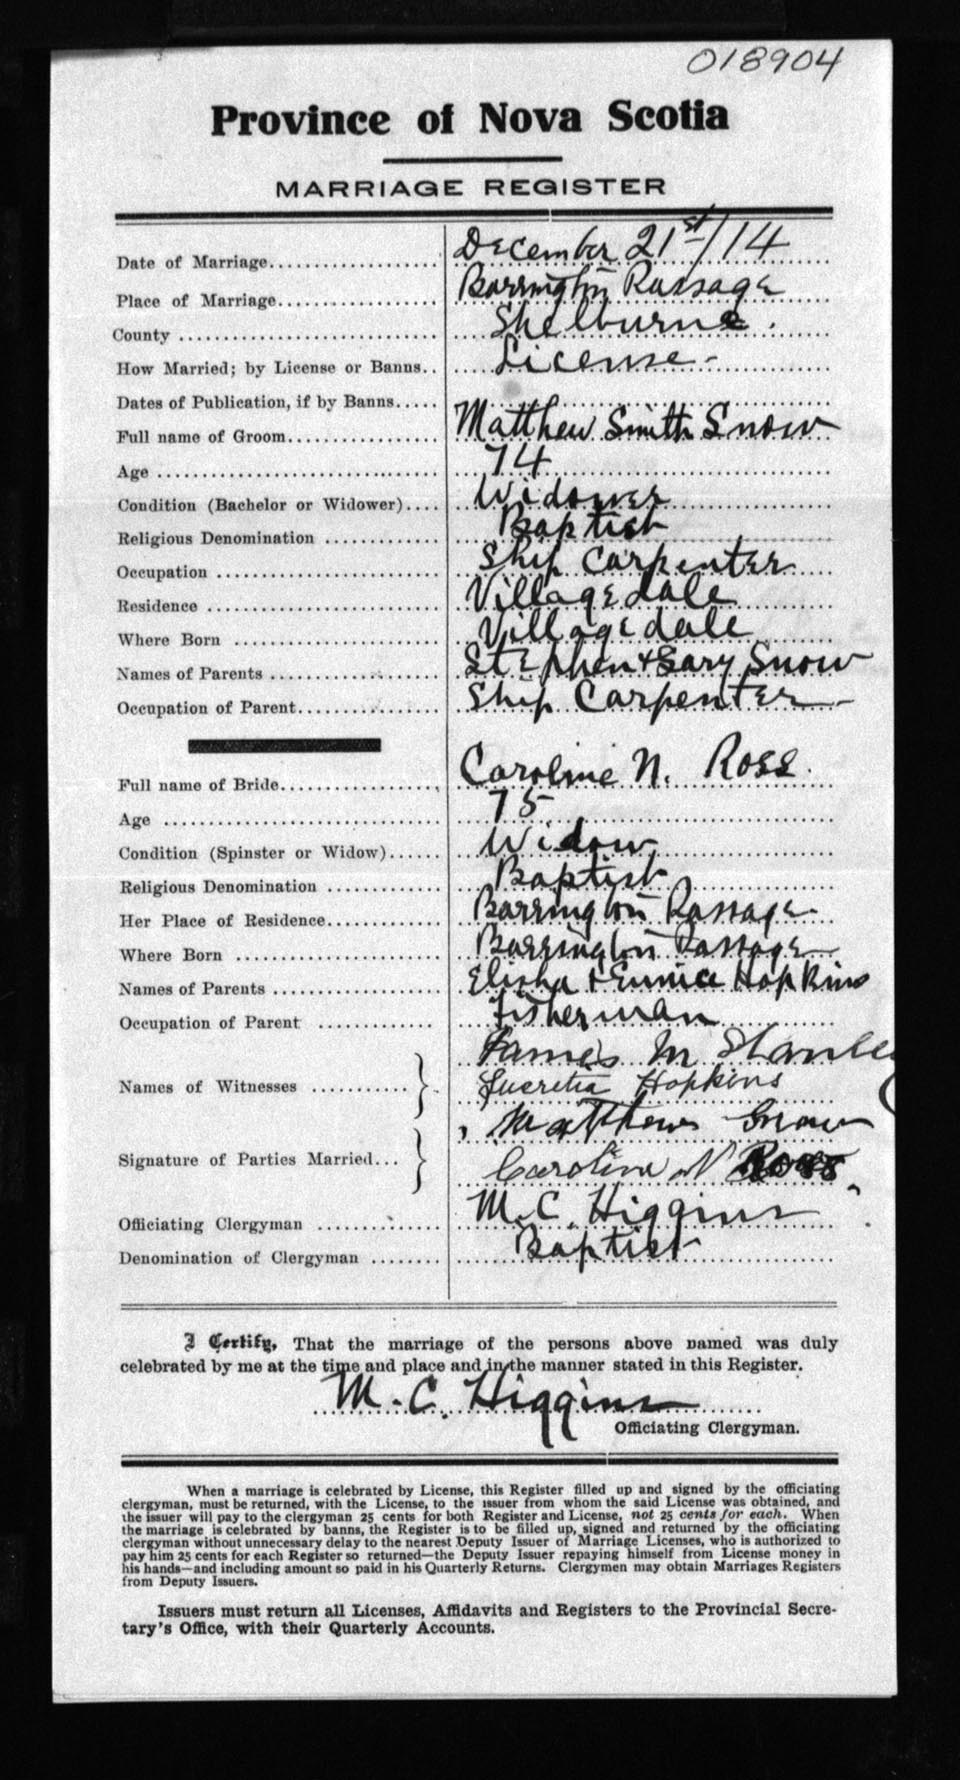 018904
Province of Nova Scotia
MARRIAGE REGISTER
Date of Marriage.................... December 21st/14
Place of Marriage.................. Barrington Passage
County .............................. Shelburne.
How Married; by License or Banns.. License-
Dates of Publication, if by Banns.....
Full name of Groom................. Matthew Smith Snow
Age ................................. 74
Condition (Bachelor or Widower).... Widower
Religious Denomination ............ Baptist
Occupation ......................... Ship Carpenter
Residence .......................... Villagedale
Where Born ....................... Villagedale
Names of Parents ................... Stephen + Gary Snow
Occupation of Parent................ Ship Carpenter-
Full name of Bride.................. Caroline N. Ross.
Age ................................ 75
Condition (Spinster or Widow)...... Widow
Religious Denomination ............ Baptist
Her Place of Residence............. Barrington Passage
Where Born ....................... Barrington Passage
Names of Parents ................... Elisha + Eunice Hopkins
Occupation of Parent ............. fisherman
James M
Names of Witnesses ........... } Lucretia Hopkins
Matthew Snow
Signature of Parties Married... } Caroline N Ross
Officiating Clergyman ............. M. C. Higgins
Denomination of Clergyman ........ Baptist
I Certify, That the marriage of the persons above named was duly
celebrated by me at the time and place and in the manner stated in this Register.
M. C. Higgins
Officiating Clergyman.
When a marriage is celebrated by License, this Register filled up and signed by the officiating
clergyman, must be returned, with the License, to the issuer from whom the said License was obtained, and
the issuer will pay to the clergyman 25 cents for both Register and License, not 25 cents for each. When
the marriage is celebrated by banns, the Register is to be filled up, signed and returned by the officiating
clergyman without unnecessary delay to the nearest Deputy Issuer of Marriage Licenses, who is authorized to
pay him 25 cents for each Register so returned—the Deputy Issuer repaying himself from License money in
his hands—and including amount so paid in his Quarterly Returns. Clergymen may obtain Marriages Registers
from Deputy Issuers.
Issuers must return all Licenses, Affidavits and Registers to the Provincial Secre-
tary's Office, with their Quarterly Accounts.